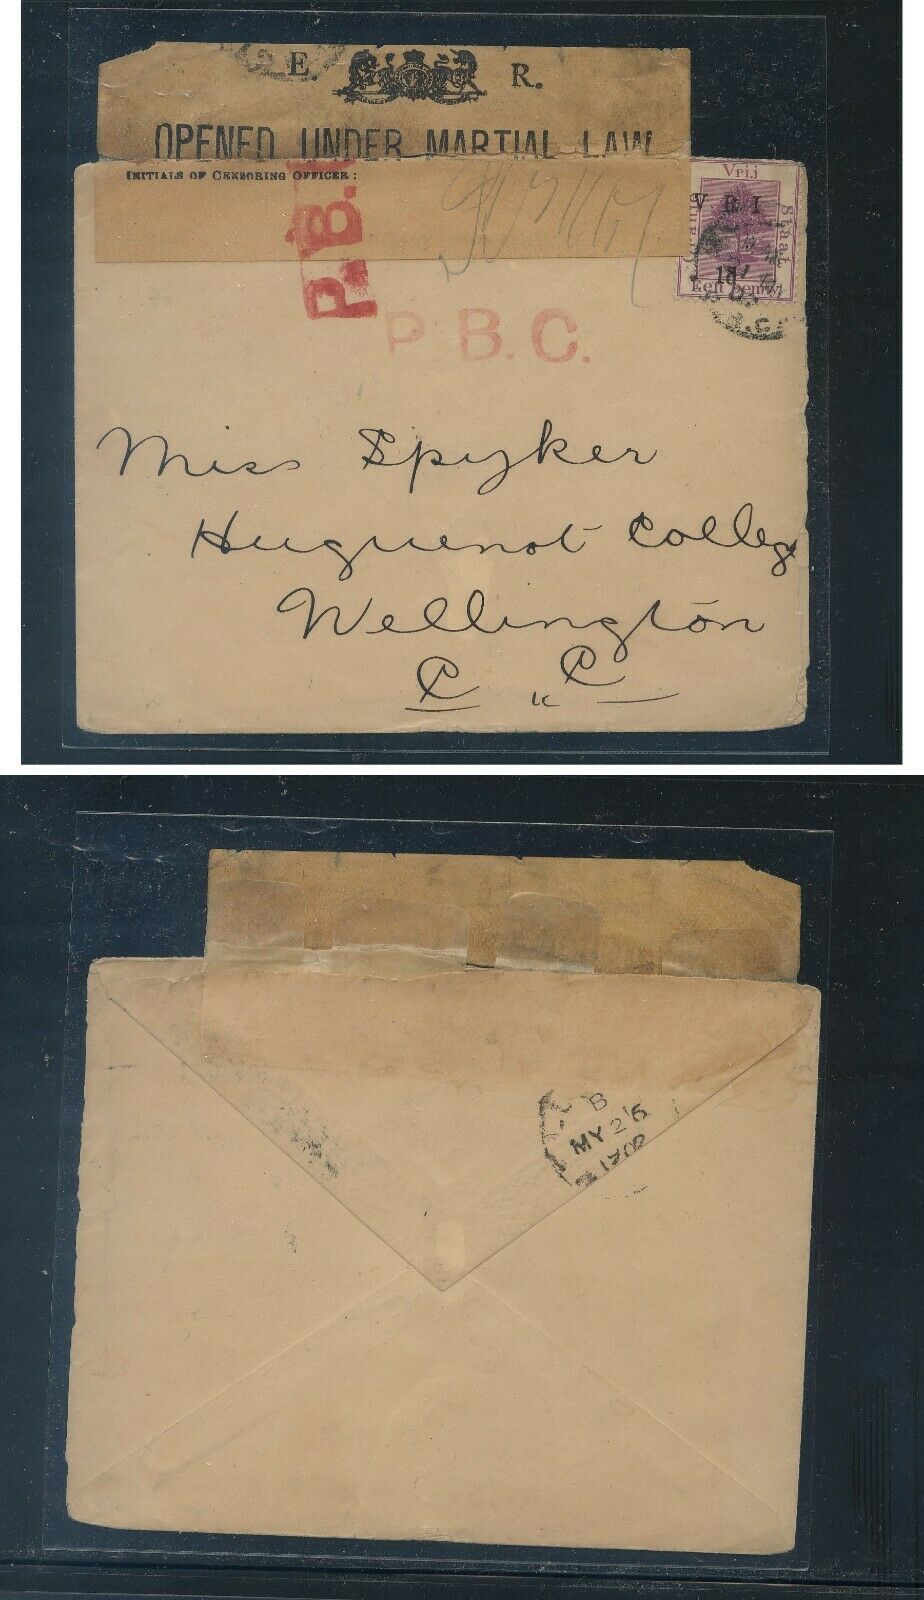 E. R.
OPENED UNDER MARTIAL LAW
INITIALS OF CENSORING OFFICER:
P.B.
P.B.C.
Vrij
Staat
V R I
1d
Een penny
Miss Spyker
Huguenot College
Wellington
C " C
B
MY 26
1902